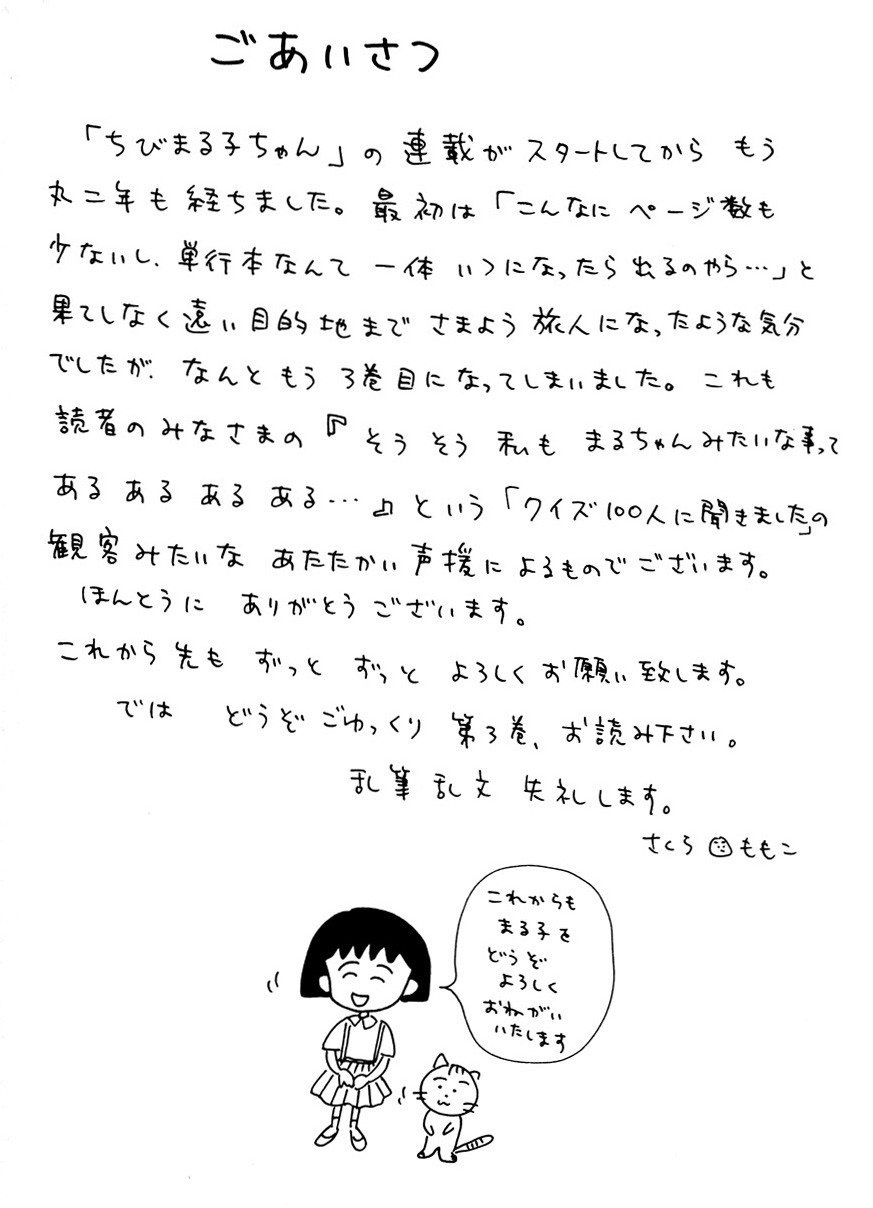 ごあいさつ
「ちびまる子ちゃん」の 連載が スタートしてから もう
丸二年も 経ちました。 最初は 「こんなに ページ数も
少ないし、単行本なんて 一体 いつになったら 出るのやら…」と
果てしなく 遠い 目的地まで さまよう 旅人になったような気分
でしたが、なんと もう 3巻目になってしまいました。 これも
読者の みなさまの 『 そう そう 私も まるちゃんみたいな事って
ある ある ある ある…』 という 「クイズ100人に聞きました」の
観客みたいな あたたかい 声援に よるものでございます。
ほんとうに ありがとう ございます。
これから 先も ずっと ずっと よろしく お願い 致します。
では どうぞ ごゆっくり 第3巻、お読み下さい。
乱筆 乱文 失礼 します。
さくら ももこ
これからも
まる子を
どうぞ
よろしく
おねがい
いたします